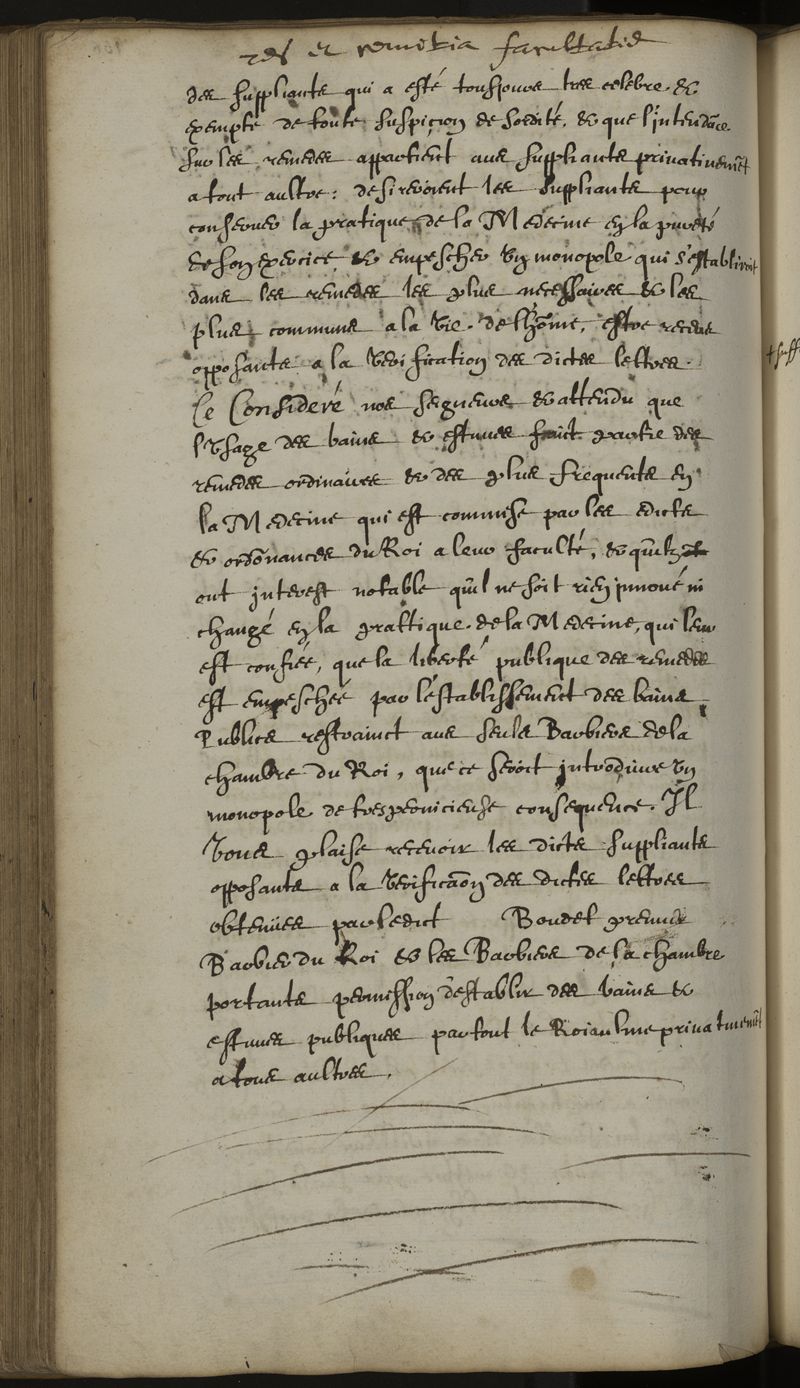 res et comitia facultatis
des suppliants qui a esté tousjours tres celebre. &
exempte de toute suspicion de sordité, & que l'intendãce
sur les remedes appartient aus suppliants privativemẽt
a tout aultre : desireroient les suppliants pour
conserver la pratique de la Medecine en la pureté
de son exercice, & empescher un monopole qui s'establiroit
dans les remedes les plus necessaires & les
plus communs a la vie de lhõme, estre receus
opposants a la verification des dictes lettres.
Ce Consideré nos seigneurs & attendu que
l'usage des bains & estuves faict partie des
remedes ordinaires & des plus frequents en
la Medecine qui est commise par les edicts
& ordõnances du Roi a leur faculté, & quilz
ont interest notable quil ne soit rien innoué ni
changé en la prattique de la Medecine, qui leur
est confiée, que la liberté publique des remedes
est empeschée par l'establissement des bains
Publics restrainct aus seuls Barbiers de la
chambre du Roi, que ce seroit introduire un
monopole de tres pernicieuse consequence. Il
Vous plaise recevoir les dicts suppliants
opposants a la verificaõn des dictes lettres
obtenues par ledict Boudet premier
Barbier du Roi & les Barbiers de la chambre
portants permission d'establir des bains &
estuves publiques partout le Roiaulme privativemẽt
a tous aultres.